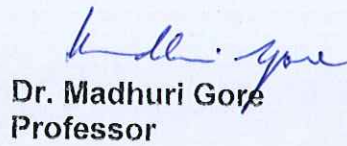 Madhuri Gore
Dr. Madhuri Gore
Professor